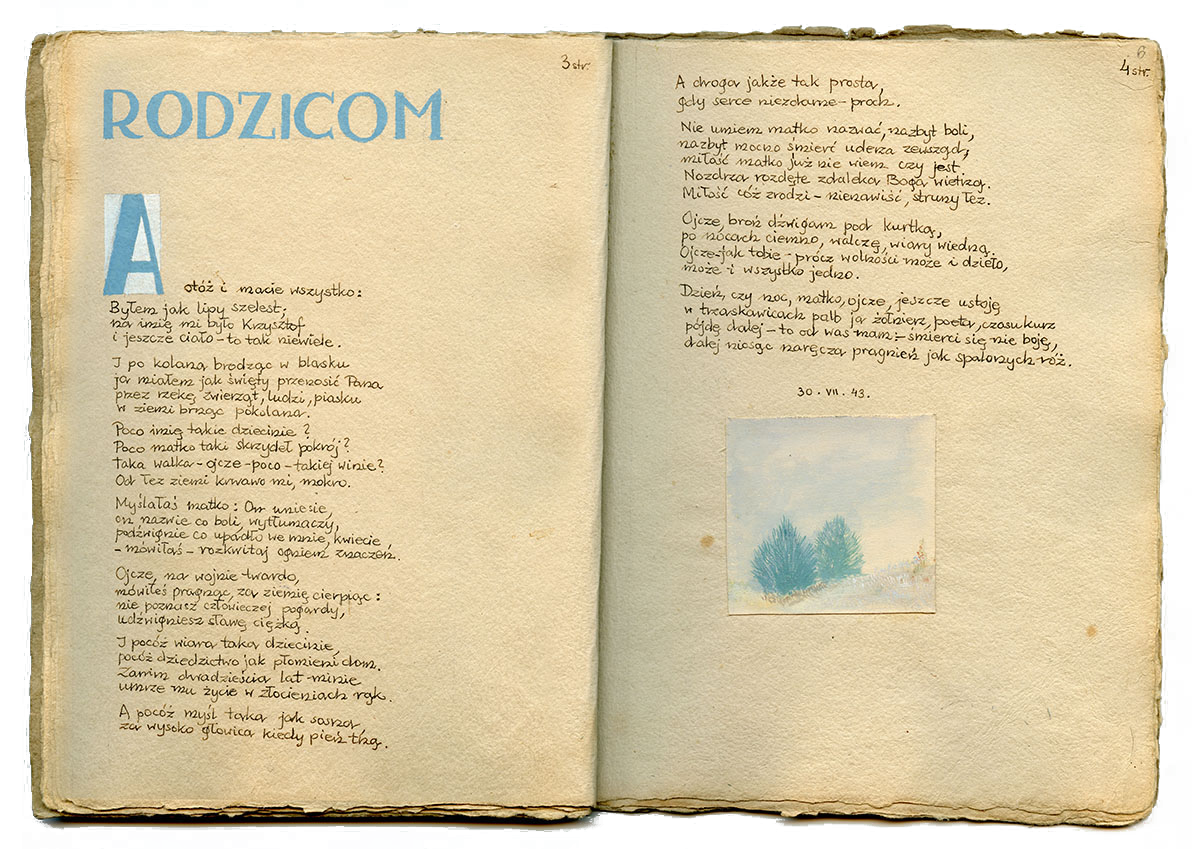 3 str.
RODZICOM
A otóż i macie wszystko:
Byłem jak lipy szelest,
na imię mi było Krzysztof
i jeszcze ciało – to tak niewiele.
I po kolana brodząc w blasku
ja miałem jak święty przenosić Pana
przez rzekę zwierząt, ludzi, piasku
w ziemi brnąc pokolana.
Poco imię takie dziecinie?
Poco matko taki skrzydeł pokrój?
taka walka – ojcze – poco – takiej winie?
Od łez ziemi krwawo mi, mokro.
Myślałaś matko: On uniesie,
on nazwie co boli, wytłumaczy,
podźwignie co upadło we mnie, kwiecie
– mówiłaś – rozkwitaj ogniem znaczeń.
Ojcze, na wojnie twardo,
mówiłeś pragnąc, za ziemię cierpiąc:
nie poznasz człowieczej pogardy,
udźwigniesz sławę ciężką.
I pocóż wiara taka dziecinie,
pocóż dziedzictwo jak płomieni dom.
Zanim dwadzieścia lat minie
umrze mu życie w złocieniach rąk.
A pocóż myśl taka jak sosna
za wysoko głowica kiedy pień tną.
6
4 str.
A droga jakże tak prosta,
gdy serce niezdarne – proch.
Nie umiem matko nazwać, nazbyt boli,
nazbyt mocno śmierć uderza zewsząd;
miłość matko już nie wiem czy jest.
Nozdrza rozdęte zdaleka Boga wietrzą.
Miłość cóż zrodzi – nienawiść, struny łez.
Ojcze, broń dźwigam pod kurtką,
po nocach ciemno, walczę, wiary więdną.
Ojcze – jak tobie – prócz wolności może i dzieło,
może i wszystko jedno.
Dzień, czy noc, matko, ojcze, jeszcze ustoję
w trzaskawicach palb ja żołnierz, poeta, czasu kurz
pójdę dalej – to od was mam: – śmierci się nie boję,
dalej niosąc naręcza pragnień jak spalonych róż.
30. VII. 43.